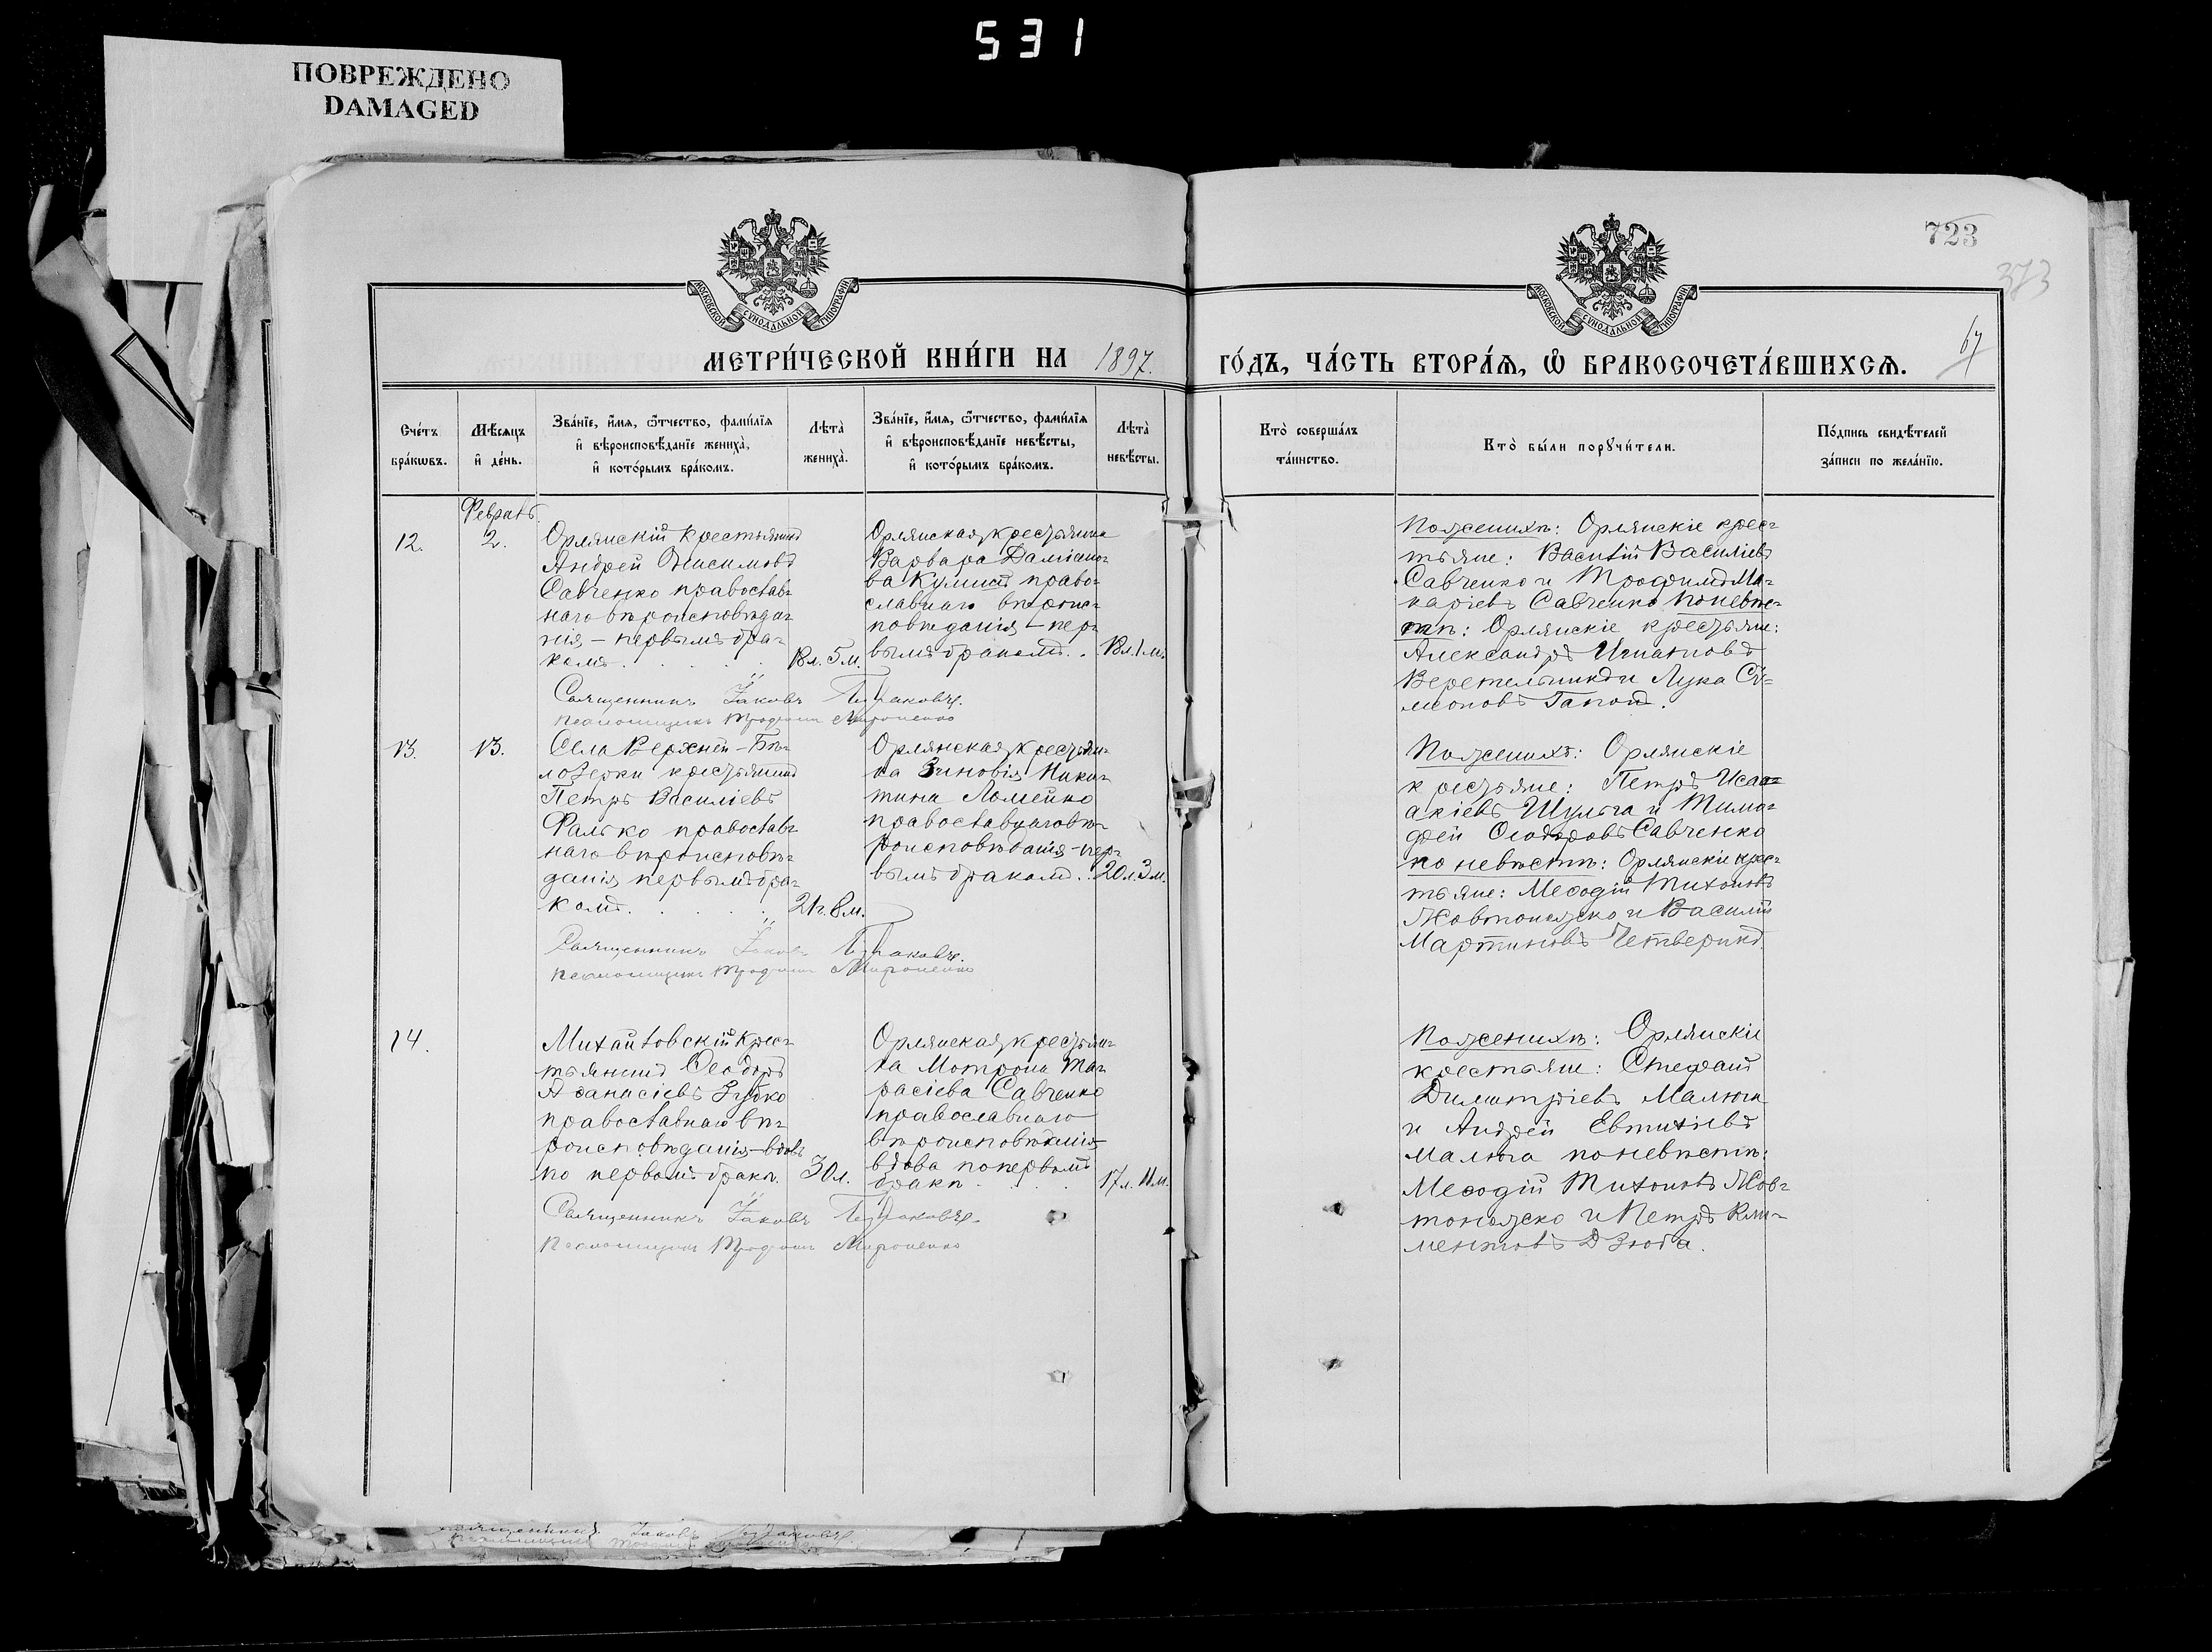 531
ПОВРЕЖДЕНО
DAMAGED
723
373
67
МОСКОВСКОЙ СѴНОДАЛЬНОЙ ТИПОГРАФІИ
МОСКОВСКОЙ СѴНОДАЛЬНОЙ ТИПОГРАФІИ
МЕТРИ́ЧЕСКОЙ КНИ́ГИ НА 1897. ГО́ДЪ, ЧА́СТЬ ВТОРА́Ѧ, Ѡ҆ БРАКОСОЧЕТА́ВШИХСѦ.
Сче́тъ
бра́кѡвъ.
Мѣ́сяцъ
и҆ де́нь.
Зва́нїе, и҆́мя, ѻ҆́тчество, фами́лїя
и҆ вѣроисповѣ́данїе жениха̀,
и҆ кото́рымъ бра́комъ.
Лѣта̀
жениха̀.
Зва́нїе, и҆́мя, ѻ҆́тчество, фами́лїя
и҆ вѣроисповѣ́данїе невѣ́сты,
и҆ кото́рымъ бра́комъ.
Лѣта̀
невѣ́сты.
Кто̀ соверша́лъ
та́инство.
Кто̀ бы́ли порꙋчи́тели.
По́дпись свидѣ́телей
за́писи по жела́нїю.
12.
Февраль
2.
Орлянскій крестьянинъ
Андрей Онисимовъ
Савченко православ-
наго вѣроисповѣда-
нія – первымъ бра-
комъ . . . . 18 л. 5 м.
Орлянская крестьянка
Варвара Даміано-
ва Кулишъ право-
славнаго вѣроис-
повѣданія – пер-
вымъ бракомъ . . 18 л. 1 м.
Священникъ Іаковъ
Псаломщикъ Трофимъ Мироненко
По женихѣ: Орлянскіе крес-
тьяне: Василій Василіевъ
Савченко и Трофимъ Ма-
каріевъ Савченко по невѣс-
тѣ: Орлянскіе крестьяне:
Александръ Игнатовъ
Веретельникъ и Лука Си-
меоновъ Гапонъ.
13. 13.
Села Верхней-Бѣ-
лозерки крестьянинъ
Петръ Василіевъ
Фалько православ-
наго вѣроисповѣ-
данія первымъ бра-
комъ . . . . 21 г. 8 м.
Орлянская крестьян-
ка Зиновія Ники-
тина Ломейко
православнаго вѣ-
роисповѣданія – пер-
вымъ бракомъ . . 20 л. 3 м.
Священникъ Іаковъ
Псаломщикъ Трофимъ Мироненко
По женихѣ: Орлянскіе
крестьяне: Петръ Исаа-
акіевъ Шульга и Тимо-
фей Ѳеодоровъ Савченко
по невѣстѣ: Орлянскіе крес-
тьяне: Меѳодій Тихоновъ
Жовтоножко и Василій
Мартиновъ Четверикъ.
14.
Михайловскій крес-
тьянинъ Ѳеодоръ
Аѳанасіевъ Зубко
православнаго вѣ-
роисповѣданія – вдовъ
по первомъ бракѣ. 30 л.
Орлянская крестьян-
ка Мотрона Та-
расіева Савченко
православнаго
вѣроисповѣданія
вдова по первомъ
бракѣ . . . . 17 л. 11 м.
Священникъ Іаковъ
Псаломщикъ Трофимъ Мироненко
По женихѣ: Орлянскіе
крестьяне: Стефанъ
Димитріевъ Малюга
и Андрей Евтихіевъ
Малюга по невѣстѣ:
Меѳодій Тихоновъ Жов-
тоножко и Петръ Кли-
ментовъ Дзюба.